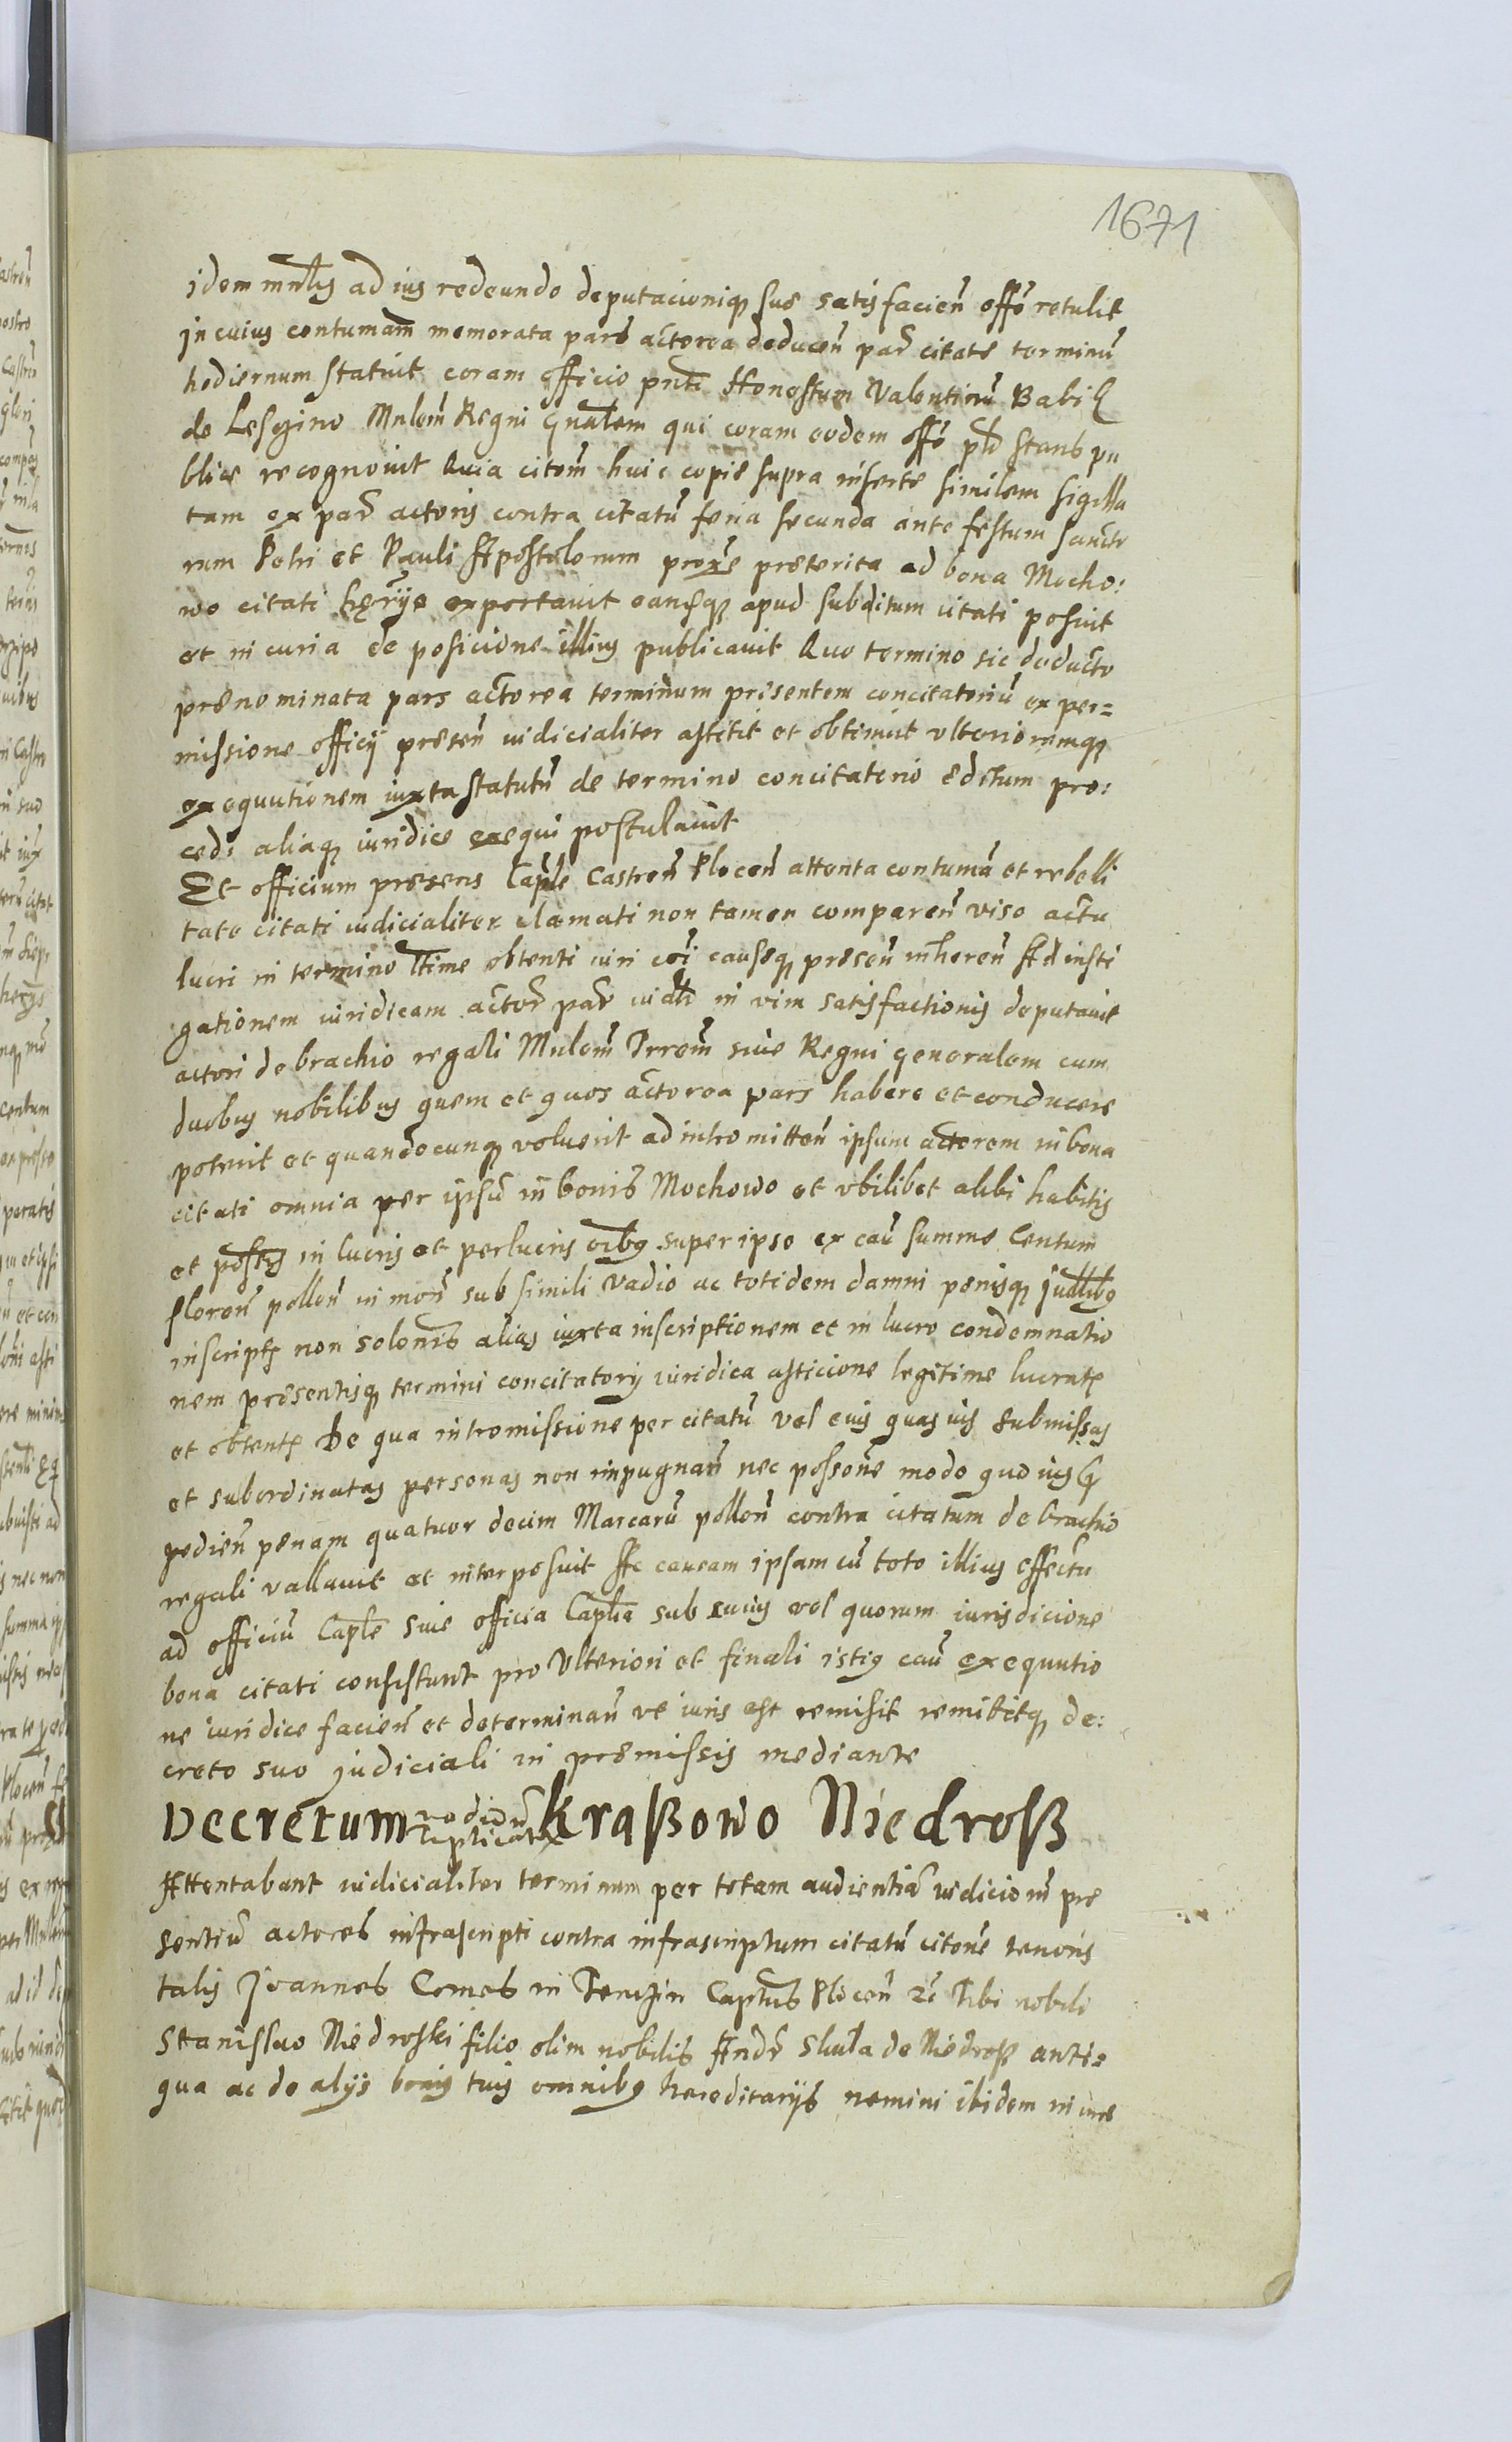 1671
idem mnlis ad ius redeundo deputacioniq sue satisfacien offo retulit
In cuius contumam memorata pars actorea deducen par citate terminu
hodiernum statuit coram officio pnti Honestum Valentinu Babik
de Lesczino Mnlem Regni gnalem qui coram eodem offo stans pu
blice recognovit Quia citom huic copie supra inserte similem sigilla
tam ex par actoris contra citatu feria secunda ante festum sancto
rum Petri et Pauli Apostolorum proxe preterita ad bona Mocho:
wo citati exportavit eamq apud subditum citati posuit
et in curia de posicione illius publicavit Quo termino sic deducto
prenominata pars actorea terminum presentem concitatoriu ex per=
missione officij presen iudicialiter astitit et obtinuit vlterioremq
exequutionem iuxta statutu de termino concitatorio editum pro:
cedi aliaq iuridice exequi postulavit
Et officium presens Caple Castren Plocen attenta contuma et rebelli
tate citati iudicialiter clamati non tamen comparen viso actu
lucri in termino obtenti iuri coi causeq presen inheren Ad insti
gationem iuridicam actor par in vim satisfactionis deputavit
actori de brachio regali Mnlem Trrem siue Regni generalem cum
duobus nobilibus quem et quos actorea pars habere et conducere
poterit et quandocunq voluerit ad intromitten ipsum actorem in bona
citati omnia per ipsu in bonis Mochowo et vbilibet alibi habitis
et in lucris et perlucris oibq super ipso ex cau summe Centum
floren pollon in mon sub simili vadio ac totidem damni penisq
inscripte non solonis alias iuxta inscriptionem et in lucro condemnatio
nem presentisq termini concitatorij iuridica asticione legitime lucrate
et obtente De qua intromissione per citatu vel eius quasuis submissas
et subordinatas personas non impugnan nec possone modo quouis
pedien penam quatuor decim Marcaru pollon contra citatum de brachio
regali vallavit et interposuit Ac causam ipsam cu toto illius effectu
ad officiu Caple siue officia Caplia sub cuius vel quorum iurisdicione
bona citati consistunt pro Vlteriori et finali istiq cau exequutio
ne iuridice facien et determinan vt iuris est remisit remittitq de:
creto suo judiciali in premissis mediante
Decretum vadiu replicatx Kraßowo Niedroß
Attentabant iudicialiter terminum per totam audientia iudiciom pre
sentiu actores infrascripti contra infrascriptum citatu citone tenoris
talis Joannes Comes in Tenczin Captus Plocen Tibi nobili
Stanislao Niedroski filio olim nobilis Andr Skula de Niedroß anti=
qua ac de alijs bonis tuis omnibq hereditarijs nemini ibidem in iure